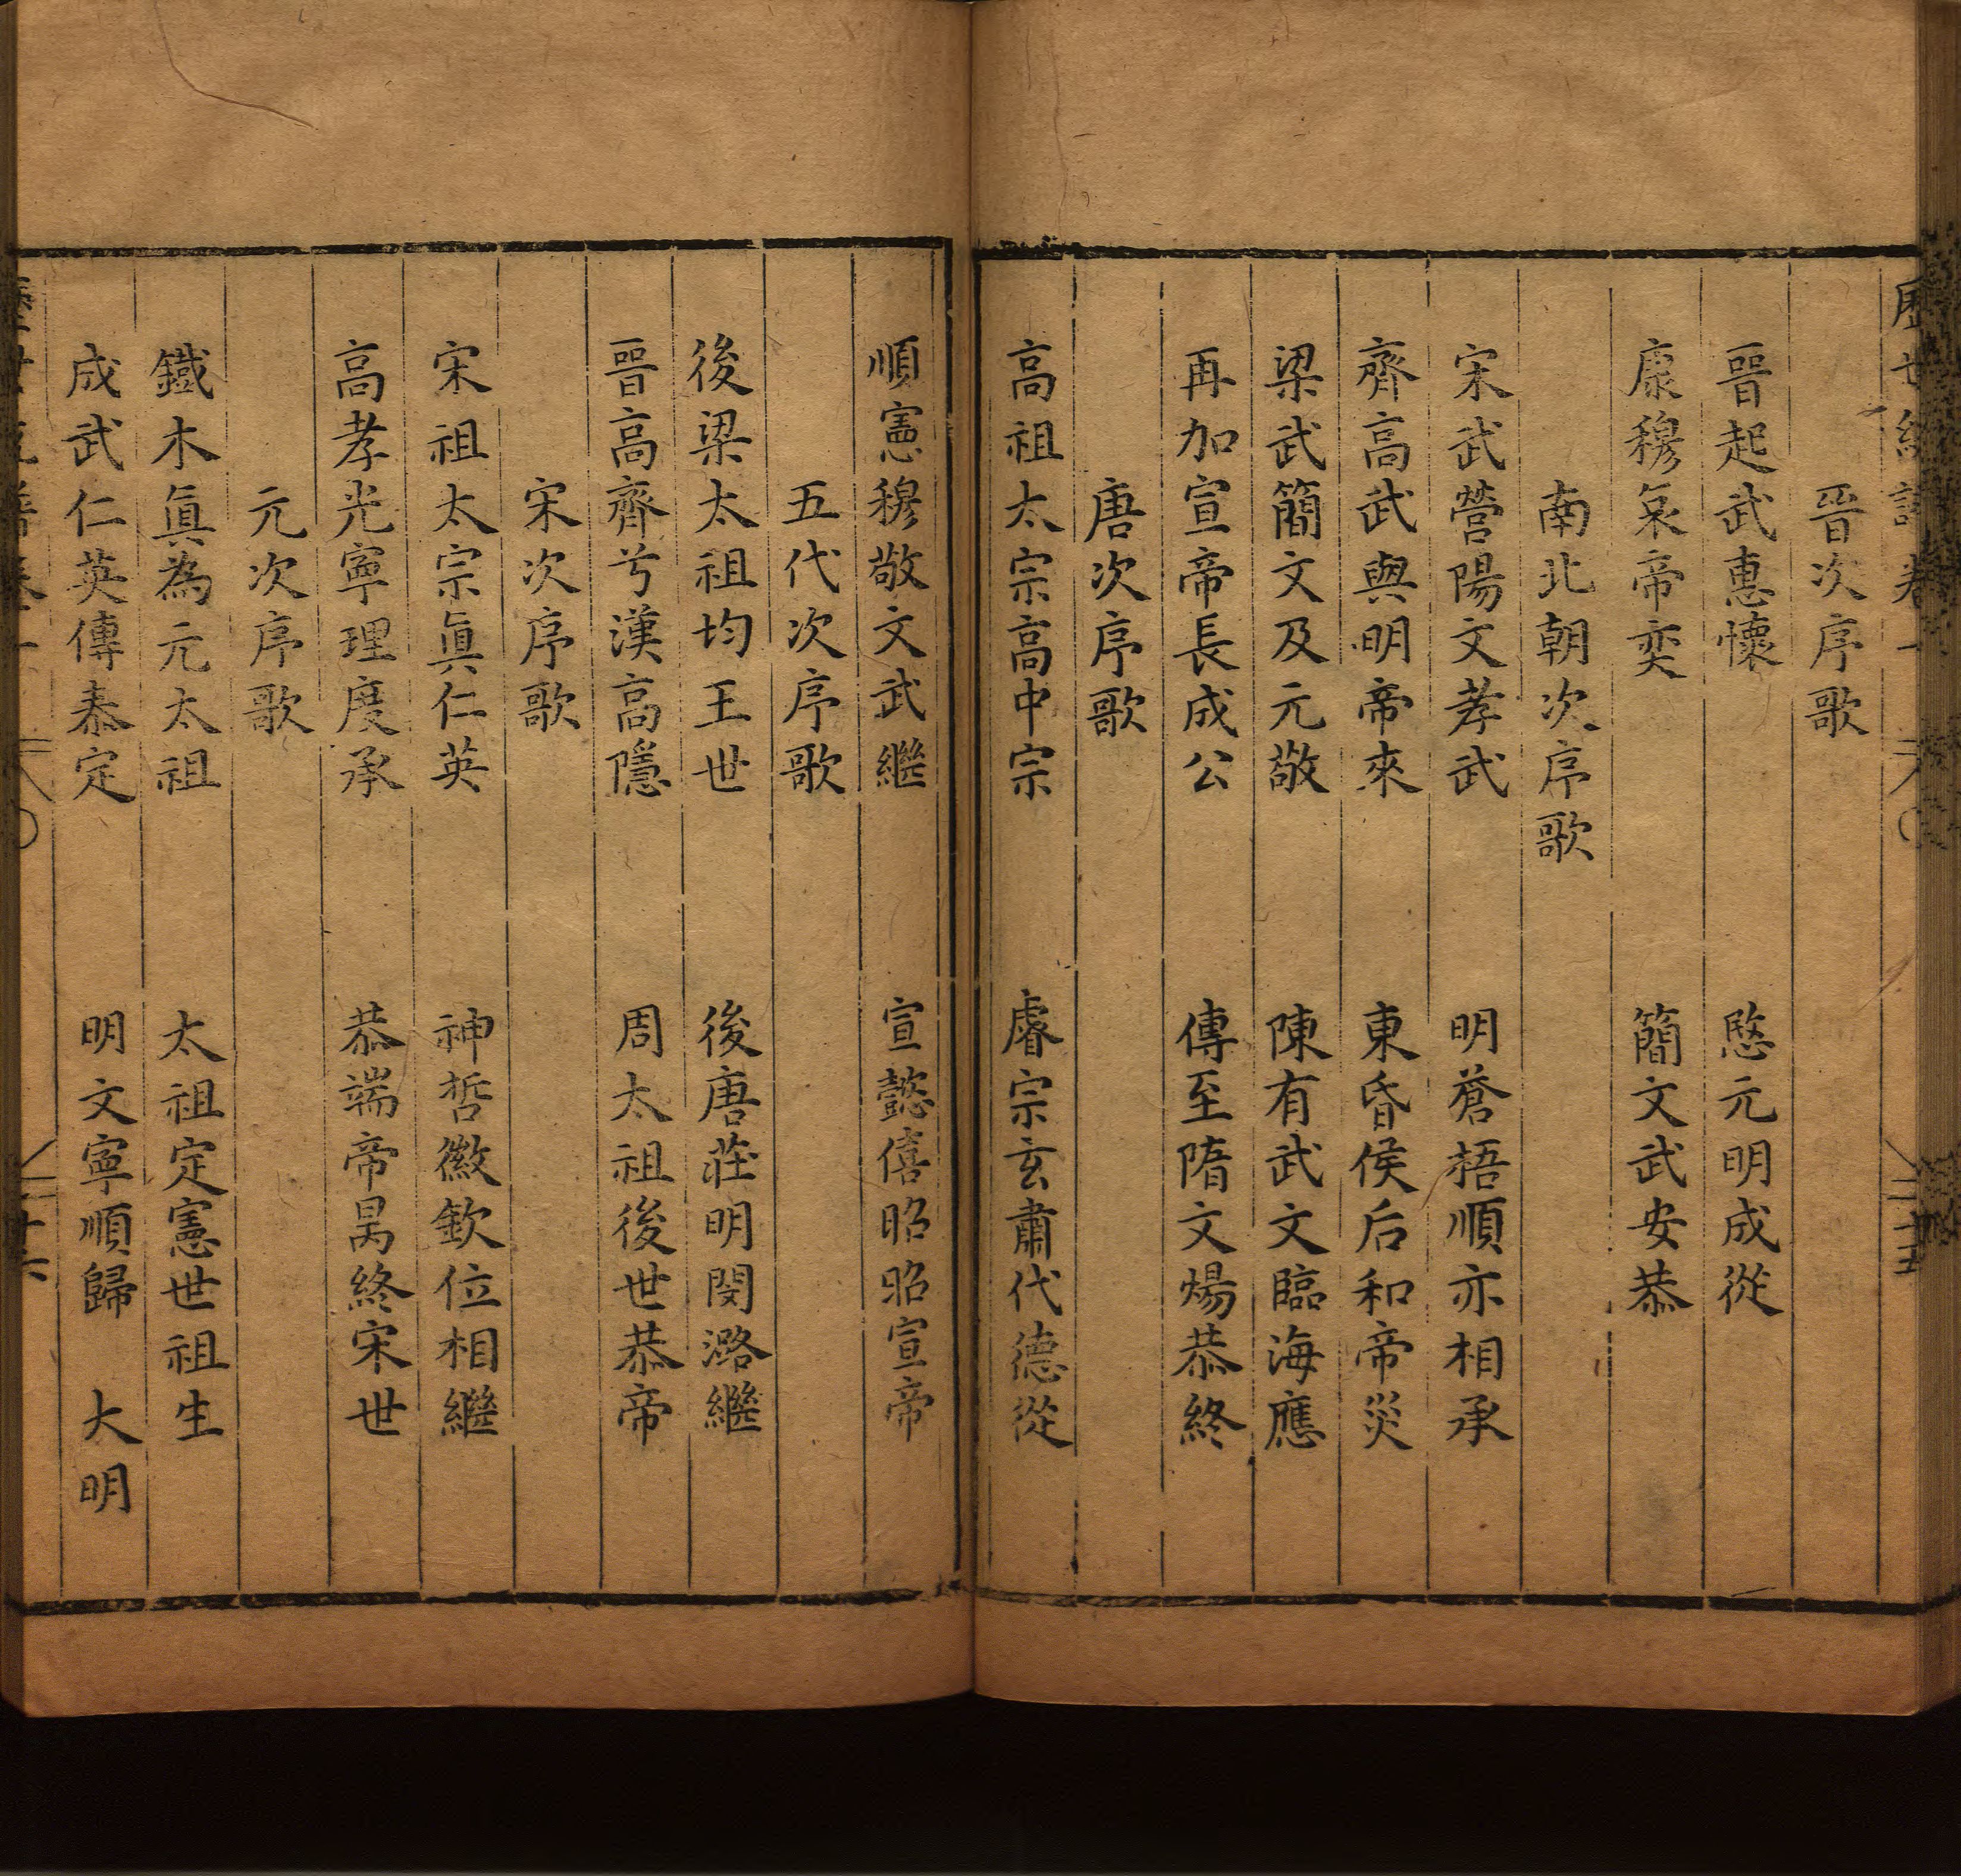 晉次序歌
晋起武惠懷　愍元明成從
康穆哀帝奕　簡文武安恭
南北朝次序歌
宋武營陽文孝武　明蒼梧順亦相承
齊高武與明帝來　東昏侯后和帝災
梁武簡文及元敬　陳有武文臨海應
再加宣帝長成公　傳至隋文煬恭終
唐次序歌
高祖太宗高中宗　睿宗玄肅代德從
順憲穆敬文武繼　宣懿僖昭昭宣帝
五代次序歌
後梁太祖均王世　後唐莊明閔潞繼
晉高齊兮漢高隱　周太祖後世恭帝
宋次序歌
宋祖太宗眞仁英　神哲徽欽位相繼
高孝光寧理度承　恭端帝昺終宋世
元次序歌
鐵木眞為元太祖　太祖定憲世祖生
成武仁英傳泰定　明文寧順歸　大明